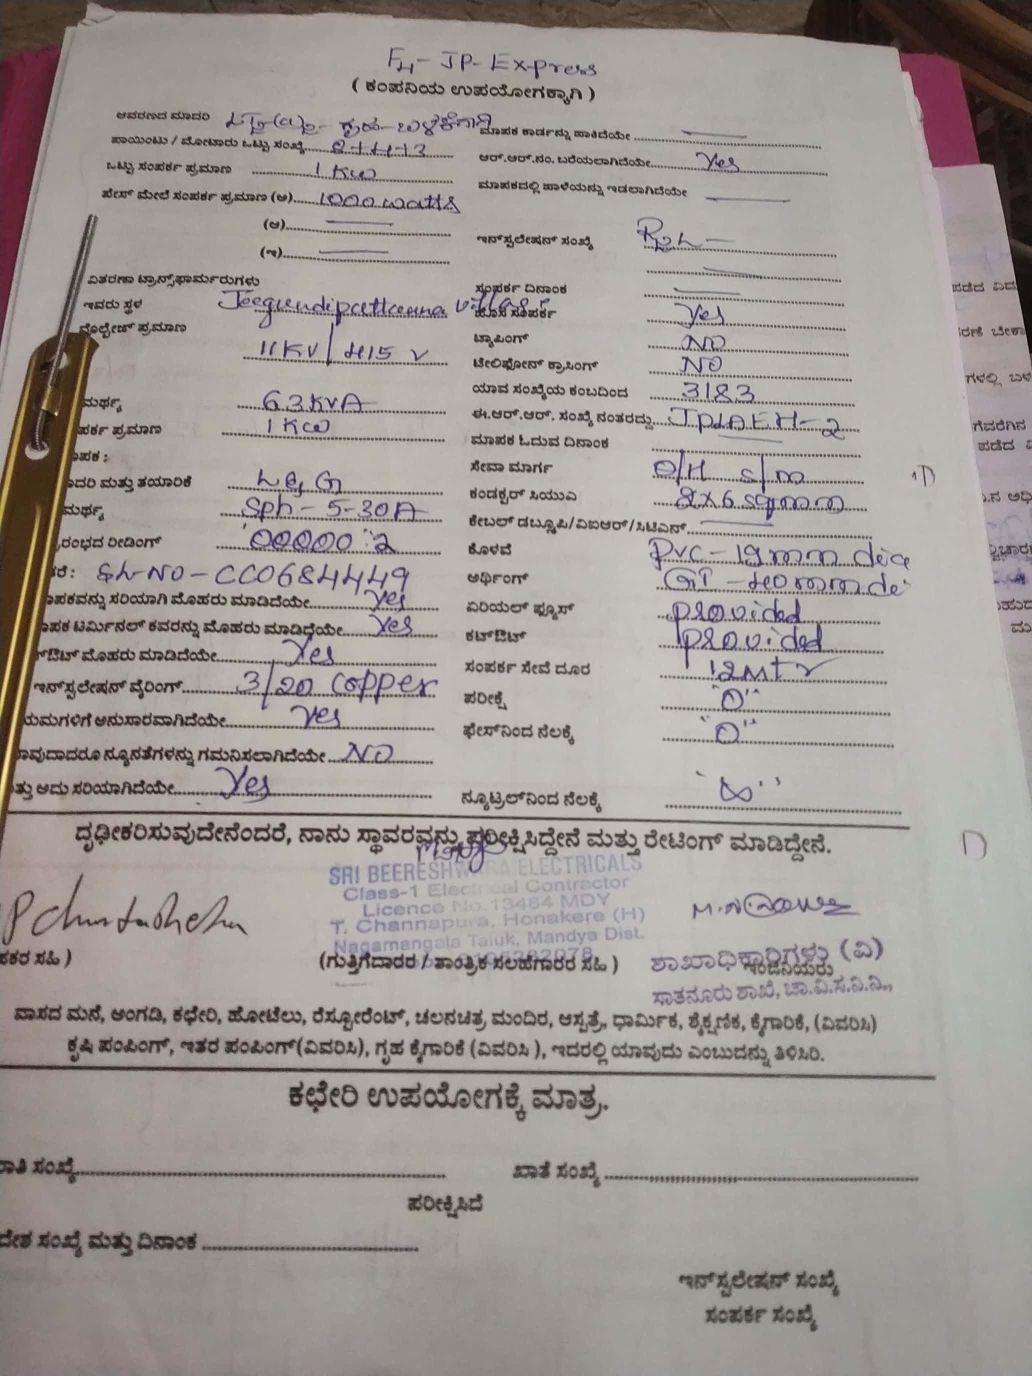 F4- JP- Express
( ಕಂಪನಿಯ ಉಪಯೋಗಕ್ಕಾಗಿ )
ಆವರಣದ ಮಾದರಿ LT2(a)2- ಗೃಹ- ಬಳಕೆಗಾಗಿ
ಮಾಪಕ ಕಾರ್ಡನ್ನು ಹಾಕಿದೆಯೇ
ಪಾಯಿಂಟು / ಮೋಟಾರು ಒಟ್ಟು ಸಂಖ್ಯೆ
ಆರ್.ಆರ್.ನಂ. ಬರೆಯಲಾಗಿದೆಯೇ Yes
ಒಟ್ಟು ಸಂಪರ್ಕ ಪ್ರಮಾಣ 1 KW
ಮಾಪಕದಲ್ಲಿ ಹಾಳೆಯನ್ನು ಇಡಲಾಗಿದೆಯೇ
ಫೇಸ್ ಮೇಲೆ ಸಂಪರ್ಕ ಪ್ರಮಾಣ (ಅ) 1000 watts
(ಆ)
ಇನ್‌ಸ್ಟಲೇಷನ್ ಸಂಖ್ಯೆ
(ಇ)
ವಿತರಣಾ ಟ್ರಾನ್ಸ್‌ಫಾರ್ಮರುಗಳು
ಸಂಪರ್ಕ ದಿನಾಂಕ
ಇವರು ಸ್ಥಳ Jeegundipattanna village
ಹೊಸ ಸಂಪರ್ಕ Yes
ವೋಲ್ಟೇಜ್ ಪ್ರಮಾಣ 11KV/415 V
ಟ್ಯಾಪಿಂಗ್ NO
ಟೆಲಿಫೋನ್ ಕ್ರಾಸಿಂಗ್ NO
ಯಾವ ಸಂಖ್ಯೆಯ ಕಂಬದಿಂದ 3183
ಮರ್ಥ್ಯ 63KVA
ಈ.ಆರ್.ಆರ್. ಸಂಖ್ಯೆ ನಂತರದ್ದು
ಪರ್ಕ ಪ್ರಮಾಣ 1 KW
ಮಾಪಕ ಓದುವ ದಿನಾಂಕ
ಾಪಕ :
ಸೇವಾ ಮಾರ್ಗ O/H S/M
ಾದರಿ ಮತ್ತು ತಯಾರಿಕೆ L&G
ಕಂಡಕ್ಟರ್ ಸಿಯುಎ 2x6 sqmm
ಮರ್ಥ್ಯ Sph- 5-30A
ಕೇಬಲ್ ಡಬ್ಲೂಪಿ/ವಿಐಆರ್/ಸಿಟಿಎಸ್
ರಂಭದ ರೀಡಿಂಗ್ 00000:2
ಕೊಳವೆ PVC- 19mm dia
ರೆ: SL-NO- CC0684449
ಅರ್ಥಿಂಗ್ GI - 40mm di
ಾಪಕವನ್ನು ಸರಿಯಾಗಿ ಮೊಹರು ಮಾಡಿದೆಯೇ Yes
ಏರಿಯಲ್ ಫ್ಯೂಸ್ provided
ಾಪಕ ಟರ್ಮಿನಲ್ ಕವರನ್ನು ಮೊಹರು ಮಾಡಿದೆಯೇ Yes
ಕಟ್‌ಔಟ್ provided
ಟ್‌ಔಟ್ ಮೊಹರು ಮಾಡಿದೆಯೇ Yes
ಸಂಪರ್ಕ ಸೇವೆ ದೂರ 12Mtr
ಇನ್‌ಸ್ಟಲೇಷನ್ ವೈರಿಂಗ್ 3/20 copper
ಪರೀಕ್ಷೆ "0"
ಯಮಗಳಿಗೆ ಅನುಸಾರವಾಗಿದೆಯೇ Yes
ಫೇಸ್‌ನಿಂದ ನೆಲಕ್ಕೆ "0"
ಾವುದಾದರೂ ನ್ಯೂನತೆಗಳನ್ನು ಗಮನಿಸಲಾಗಿದೆಯೇ NO
ತ್ತು ಅದು ಸರಿಯಾಗಿದೆಯೇ Yes
ನ್ಯೂಟ್ರಲ್‌ನಿಂದ ನೆಲಕ್ಕೆ "∞"
ದೃಢೀಕರಿಸುವುದೇನೆಂದರೆ, ನಾನು ಸ್ಥಾವರವನ್ನು ಪರೀಕ್ಷಿಸಿದ್ದೇನೆ ಮತ್ತು ರೇಟಿಂಗ್ ಮಾಡಿದ್ದೇನೆ.
SRI BEERESHWARA ELECTRICALS
Class-1 Electrical Contractor
Licence No.13484 MDY
T. Channapura, Honakere (H)
Nagamangala Taluk, Mandya Dist.
ಹಕರ ಸಹಿ )
(ಗುತ್ತಿಗೆದಾರರ / ತಾಂತ್ರಿಕ ಸಲಹೆಗಾರರ ಸಹಿ )
ಶಾಖಾಧಿಕಾರಿಗಳು (ವಿ)
ಇಂಜಿನಿಯರು
ಸಾತನೂರು ಶಾಖೆ, ಚಾ.ವಿ.ಸ.ನಿ.ನಿ.,
ವಾಸದ ಮನೆ, ಅಂಗಡಿ, ಕಛೇರಿ, ಹೋಟೆಲು, ರೆಸ್ಟೋರೆಂಟ್, ಚಲನಚಿತ್ರ ಮಂದಿರ, ಆಸ್ಪತ್ರೆ, ಧಾರ್ಮಿಕ, ಶೈಕ್ಷಣಿಕ, ಕೈಗಾರಿಕೆ, (ವಿವರಿಸಿ)
ಕೃಷಿ ಪಂಪಿಂಗ್, ಇತರ ಪಂಪಿಂಗ್(ವಿವರಿಸಿ), ಗೃಹ ಕೈಗಾರಿಕೆ (ವಿವರಿಸಿ ), ಇದರಲ್ಲಿ ಯಾವುದು ಎಂಬುದನ್ನು ತಿಳಿಸಿರಿ.
ಕಛೇರಿ ಉಪಯೋಗಕ್ಕೆ ಮಾತ್ರ.
ಾತಿ ಸಂಖ್ಯೆ
ಖಾತೆ ಸಂಖ್ಯೆ
ಪರೀಕ್ಷಿಸಿದೆ
ದೇಶ ಸಂಖ್ಯೆ ಮತ್ತು ದಿನಾಂಕ
ಇನ್‌ಸ್ಟಲೇಷನ್ ಸಂಖ್ಯೆ
ಸಂಪರ್ಕ ಸಂಖ್ಯೆ